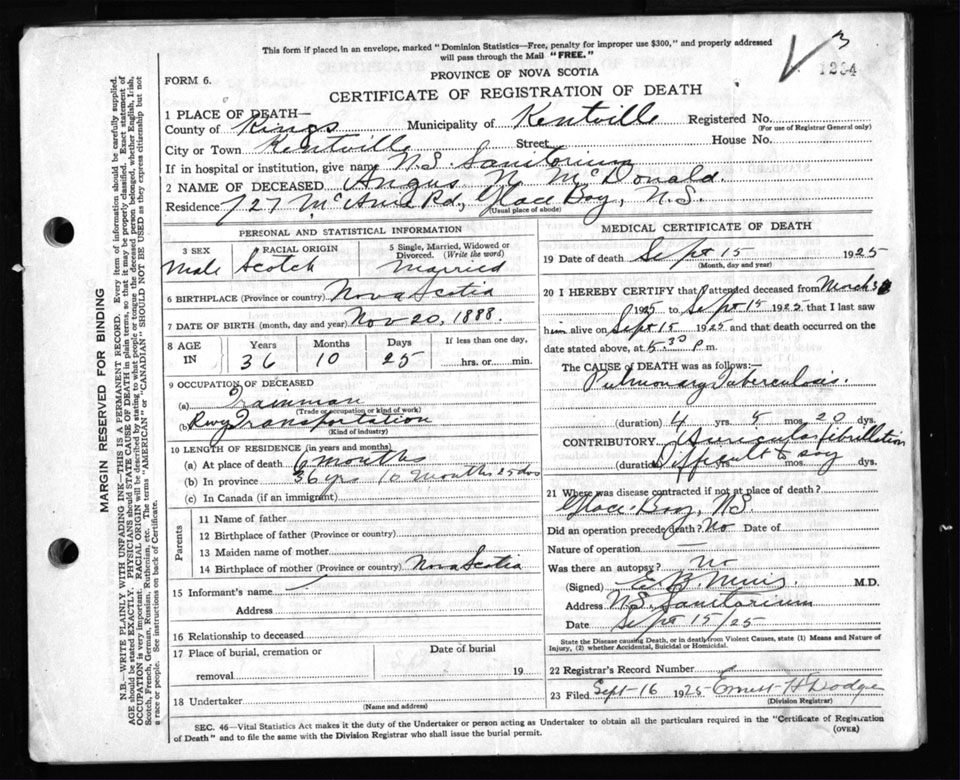 This form if placed in an envelope, marked "Dominion Statistics—Free, penalty for improper use $300," and properly addressed
will pass through the Mail "FREE."
3
1234
PROVINCE OF NOVA SCOTIA
FORM 6.
CERTIFICATE OF REGISTRATION OF DEATH
1 PLACE OF DEATH—
County of Kings Municipality of Kentville Registered No.
(For use of Registrar General only)
City or Town Kentville Street House No.
If in hospital or institution, give name N.S. Sanitorium
2 NAME OF DECEASED Angus N. McDonald.
Residence 727 Rd., Glace Bay, N.S.
(Usual place of abode)
PERSONAL AND STATISTICAL INFORMATION
3 SEX RACIAL ORIGIN 5 Single, Married, Widowed or
Divorced. (Write the word)
Male Scotch Married
6 BIRTHPLACE (Province or country) Nova Scotia
7 DATE OF BIRTH (month, day and year) Nov 20, 1888.
8 AGE IN Years Months Days If less than one day,
36 10 25 hrs. or min.
9 OCCUPATION OF DECEASED
(a) Trainman
(Trade or occupation or kind of work)
(b) Rwy Transportation
(Kind of industry)
10 LENGTH OF RESIDENCE (in years and months)
(a) At place of death 6 months
(b) In province 36 yrs 10 months 25 dys
(c) In Canada (if an immigrant)
Parents
11 Name of father
12 Birthplace of father (Province or country)
13 Maiden name of mother
14 Birthplace of mother (Province or country) Nova Scotia
15 Informant's name
Address
16 Relationship to deceased
17 Place of burial, cremation or
removal
Date of burial
19
18 Undertaker
(Name and address)
MEDICAL CERTIFICATE OF DEATH
19 Date of death Sept 15 1925
(Month, day and year)
20 I HEREBY CERTIFY that I attended deceased from March
1925 to Sept 15 1925 that I last saw
him alive on Sept 15 1925 and that death occurred on
date stated above, at 5.30 P m.
The CAUSE of DEATH was as follows:—
Pulmonary Tuberculosis.
(duration) 4 yrs. 5 mos. 20 dys.
CONTRIBUTORY Auricular fibrillation
(duration) Difficult to say yrs. mos. dys.
21 Where was disease contracted if not at place of death?
Glace Bay, N.S.
Did an operation precede death? No Date of
Nature of operation
Was there an autopsy? No
(Signed) M.D.
Address N.S. Sanitorium
Date Sept 15/25
State the Disease causing Death, or in death from Violent Causes, state (1) Means and Nature of
Injury, (2) whether Accidental, Suicidal or Homicidal.
22 Registrar's Record Number
23 Filed Sept-16 1925 Ernest H Dodge
(Division Registrar)
SEC. 46—Vital Statistics Act makes it the duty of the Undertaker or person acting as Undertaker to obtain all the particulars required in the "Certificate of Registration
of Death" and to file the same with the Division Registrar who shall issue the burial permit.
(OVER)
MARGIN RESERVED FOR BINDING
N.B.—WRITE PLAINLY WITH UNFADING INK—THIS IS A PERMANENT RECORD. Every item of information should be carefully supplied.
AGE should be stated EXACTLY. PHYSICIANS should STATE CAUSE OF DEATH in plain terms, so that it may be properly classified. Exact statement of
OCCUPATION is very important. RACIAL ORIGIN will be described by stating to what people or tongue the deceased person belonged, whether English, Irish,
Scotch, French, German, Russian, Ruthenian, etc. The terms "AMERICAN" or "CANADIAN" SHOULD NOT BE USED as they express citizenship but not
a race or people. See instructions on back of Certificate.